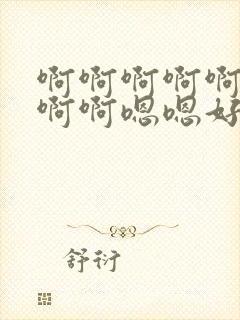 啊啊啊啊啊
啊啊嗯嗯好
舒衍